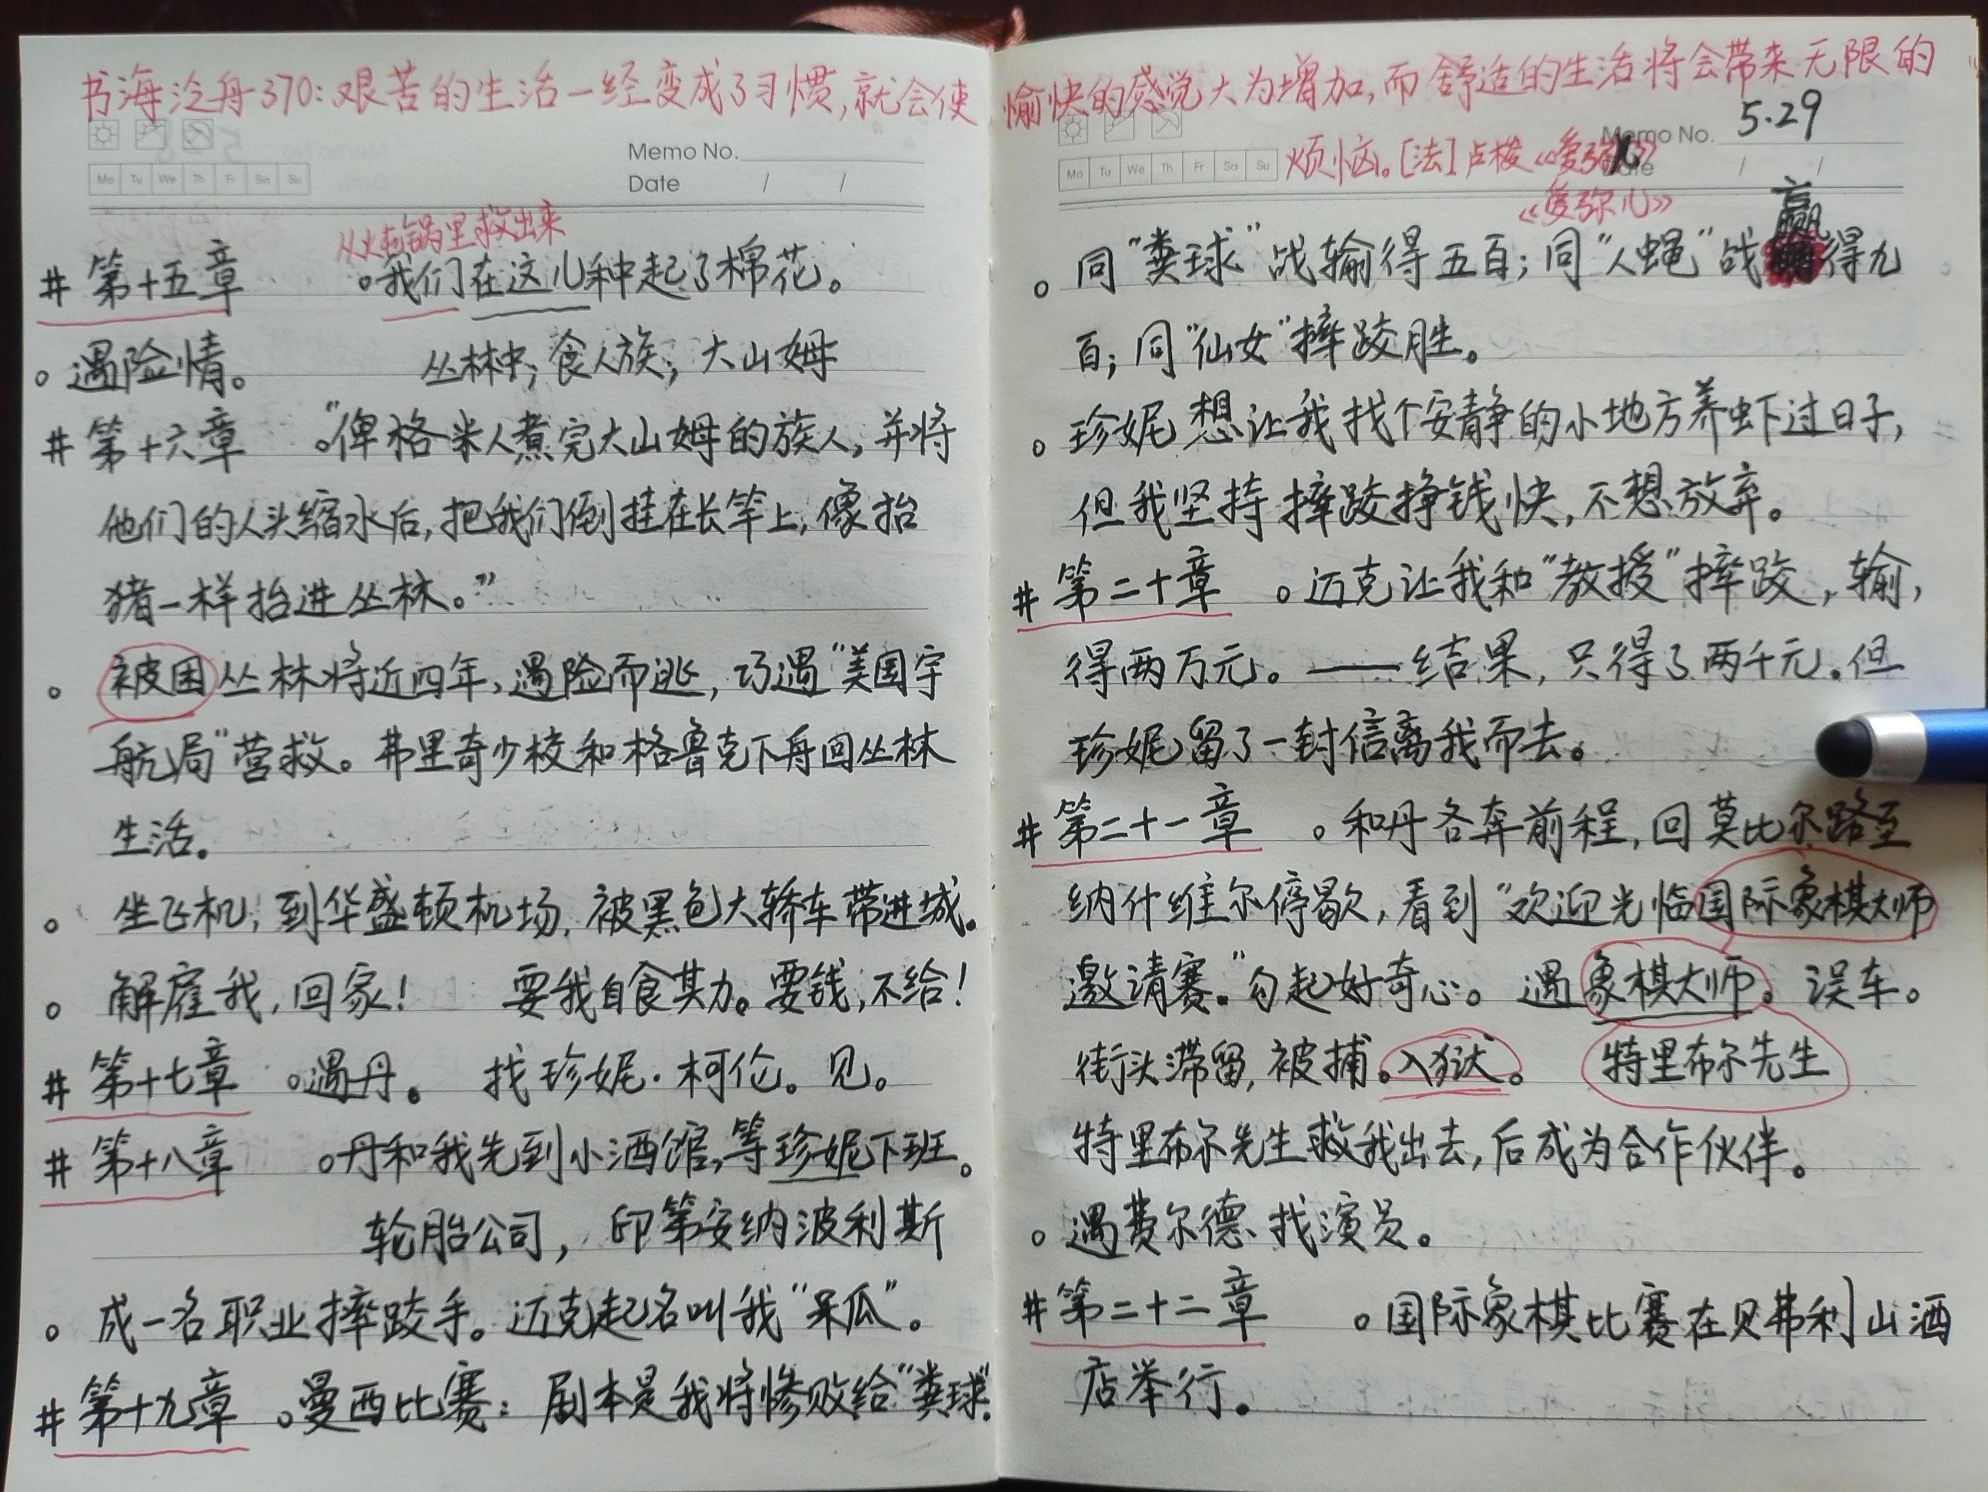 书海泛舟370:艰苦的生活一经变成了习惯,就会使
Mo Tu We Th Fr Sa Su
Memo No.
Date / /
从火锅里救出来
# 第十五章 。我们在这儿种起了棉花。
。遇险情。 丛林中;食人族;大山姆
# 第十六章 。“俾格米人煮完大山姆的族人,并将
他们的人头缩水后,把我们倒挂在长竿上,像抬
猪一样抬进丛林。”
。被困丛林将近四年,遇险而逃,巧遇“美国宇
航局”营救。弗里奇少校和格鲁克下舟回丛林
生活。
。坐飞机,到华盛顿机场,被黑色大轿车带进城。
。解雇我,回家! 要我自食其力。要钱,不给!
# 第十七章 。遇丹。 找珍妮·柯伦。见。
# 第十八章 。丹和我先到小酒馆,等珍妮下班。
轮胎公司, 印第安纳波利斯
。成一名职业摔跤手。迈克起名叫我“呆瓜”。
# 第十九章 。曼西比赛:剧本是我将惨败给“粪球”.
愉快的感觉大为增加,而舒适的生活将会带来无限的
Mo Tu We Th Fr Sa Su
Memo No. 5.29
烦恼。[法]卢梭《爱弥
《爱弥儿》
。同“粪球”战输得五百;同“人蝇”战赢得九
百;同“仙女”摔跤胜。
。珍妮想让我找个安静的小地方养虾过日子,
但我坚持摔跤挣钱快,不想放弃。
# 第二十章 。迈克让我和“教授”摔跤,输,
得两万元。——结果,只得了两千元。但
珍妮留了一封信离我而去。
# 第二十一章 。和丹各奔前程,回莫比尔路至
纳什维尔停歇,看到“欢迎光临国际象棋大师
邀请赛。”勾起好奇心。 遇象棋大师。误车。
街头滞留,被捕。入狱。 特里布尔先生
特里布尔先生救我出去,后成为合作伙伴。
。遇费尔德、找演员。
# 第二十二章 。国际象棋比赛在贝弗利山酒
店举行。